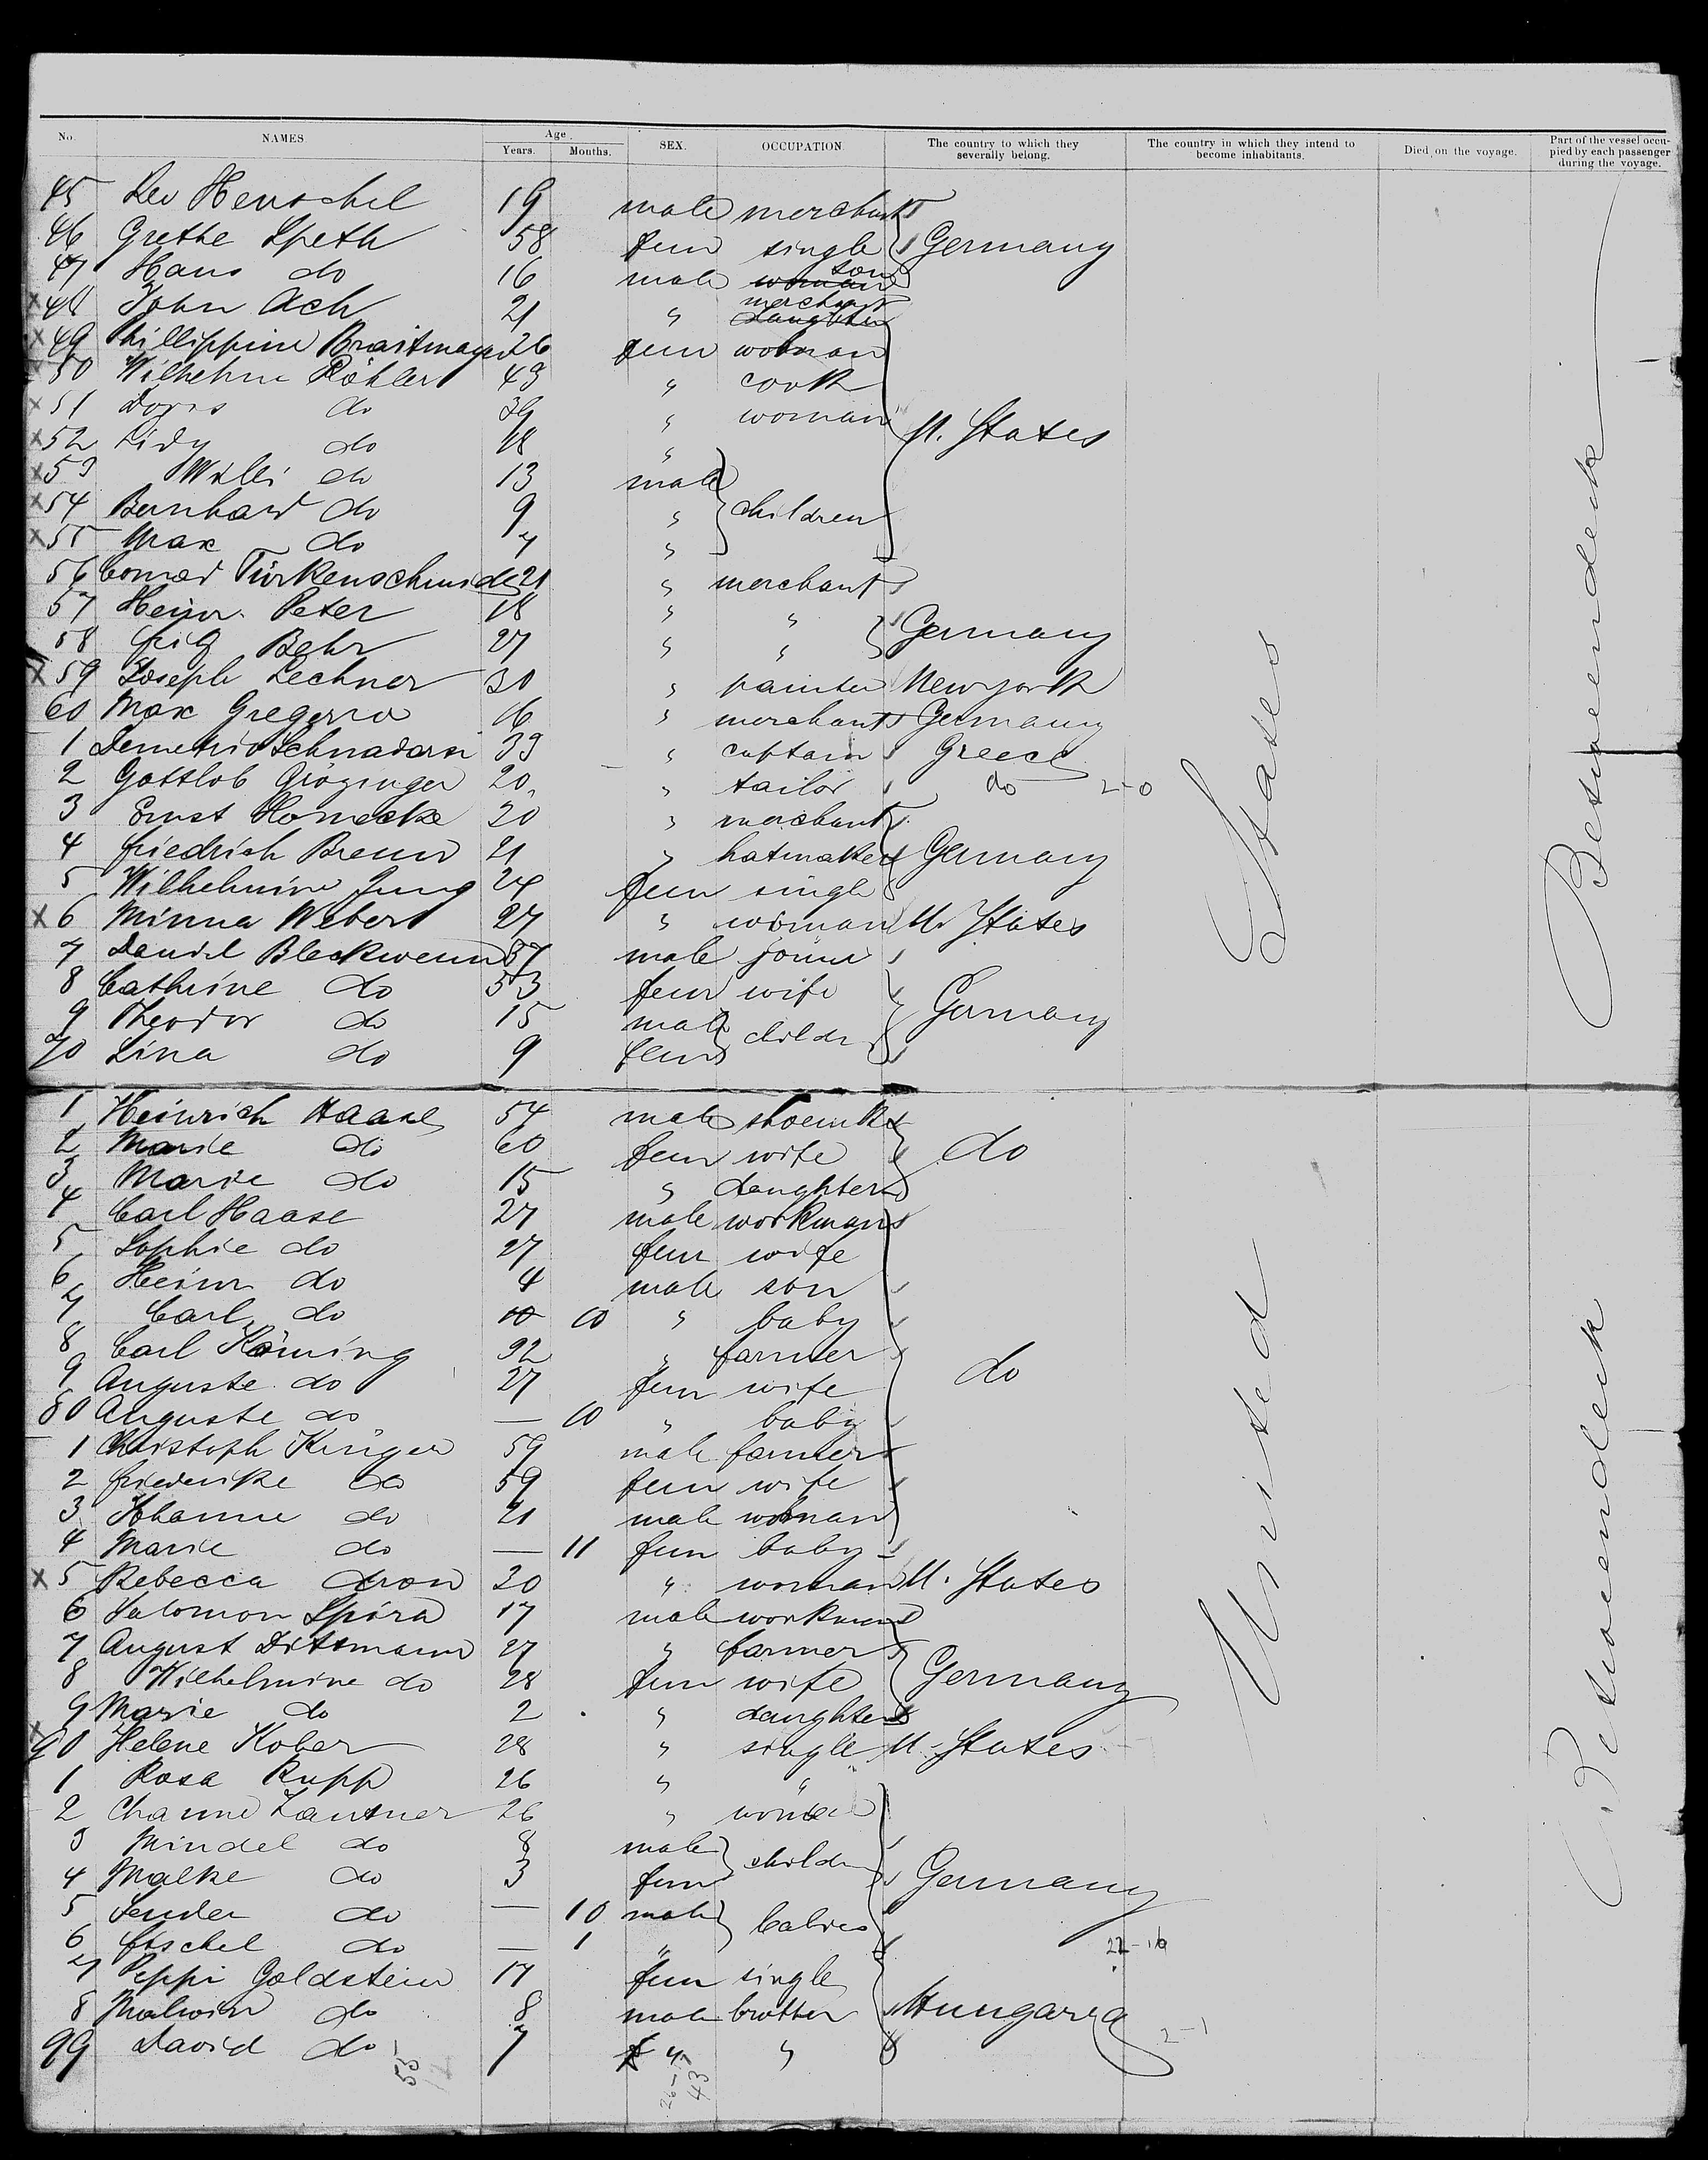 No. NAMES Age. Years. Months. SEX. OCCUPATION. The country to which they severally belong. The country in which they intend to become inhabitants. Died on the voyage. Part of the vessel occupied by each passenger during the voyage.
45 Leo Henschel 19 male merchant
46 Grethe Speth 58 fem single Germany
47 Hans do 16 male woman son
x 48 John Ach 21 " daughter merchant
x 49 Phillippine Braitmayer 26 fem woman
50 Wilhelm Köhler 43 " cook
x 51 Doris do 39 " woman U. States
x 52 Lidy do 18 "
x 53 Willi do 13 male
x 54 Bernhard do 9 " children
x 55 Max do 7 "
56 Conrad Türkenschmidt 21 " merchant
57 Heinr. Peter 18 " " Germany
58 Fritz Behr 27 " "
x 59 Joseph Lechner 30 " painter New york
60 Max Gregorio 16 " merchant Germany
1 Demetrio Schnadorsi 39 " captain Greece
2 Gottlob Grözinger 20 " tailor do 2-0
3 Ernst Hornecke 20 " merchant
4 Friedrich Breun 21 " hatmaker Germany
5 Wilhelmine Jung 24 fem single
x 6 Minna Weber 27 " woman U. States
7 Daniel Bleckwenn 57 male joiner
8 Cathrine do 53 fem wife Germany
9 Theodor do 15 male childr
70 Lina do 9 fem
1 Heinrich Haase 54 male shoemkr
2 Marie do 60 fem wife do
3 Marie do 15 " daughter
4 Carl Haase 27 male workman
5 Sophie do 27 fem wife
6 Heinr do 4 male son
7 Carl do 10 10 " baby
8 Carl Köning 32 " farmer
9 Auguste do 27 fem wife do
80 Auguste do — 10 " baby
1 Christoph Krüger 59 male farmer
2 Friederike do 59 fem wife
3 Johanne do 21 male woman
4 Marie do — 11 fem baby
x 5 Rebecca Aron 20 " woman U. States
6 Salomon Spira 17 male workman
7 August Dittmann 27 " farmer
8 Wilhelmine do 28 fem wife Germany
9 Marie do 2 " daughter
x 90 Helene Kober 28 " single U. States
1 Rosa Rupp 26 " "
2 Channe Lantner 26 " woman
3 Mindel do 8 male childr
4 Malke do 3 fem Germany
5 Sender do — 10 male babies
6 do — 1 "
7 Peppi Goldstein 17 fem single
8 Malwin do 8 male brother Hungaria
99 David do 7 " "
United States
Betweendeck
Betweendeck